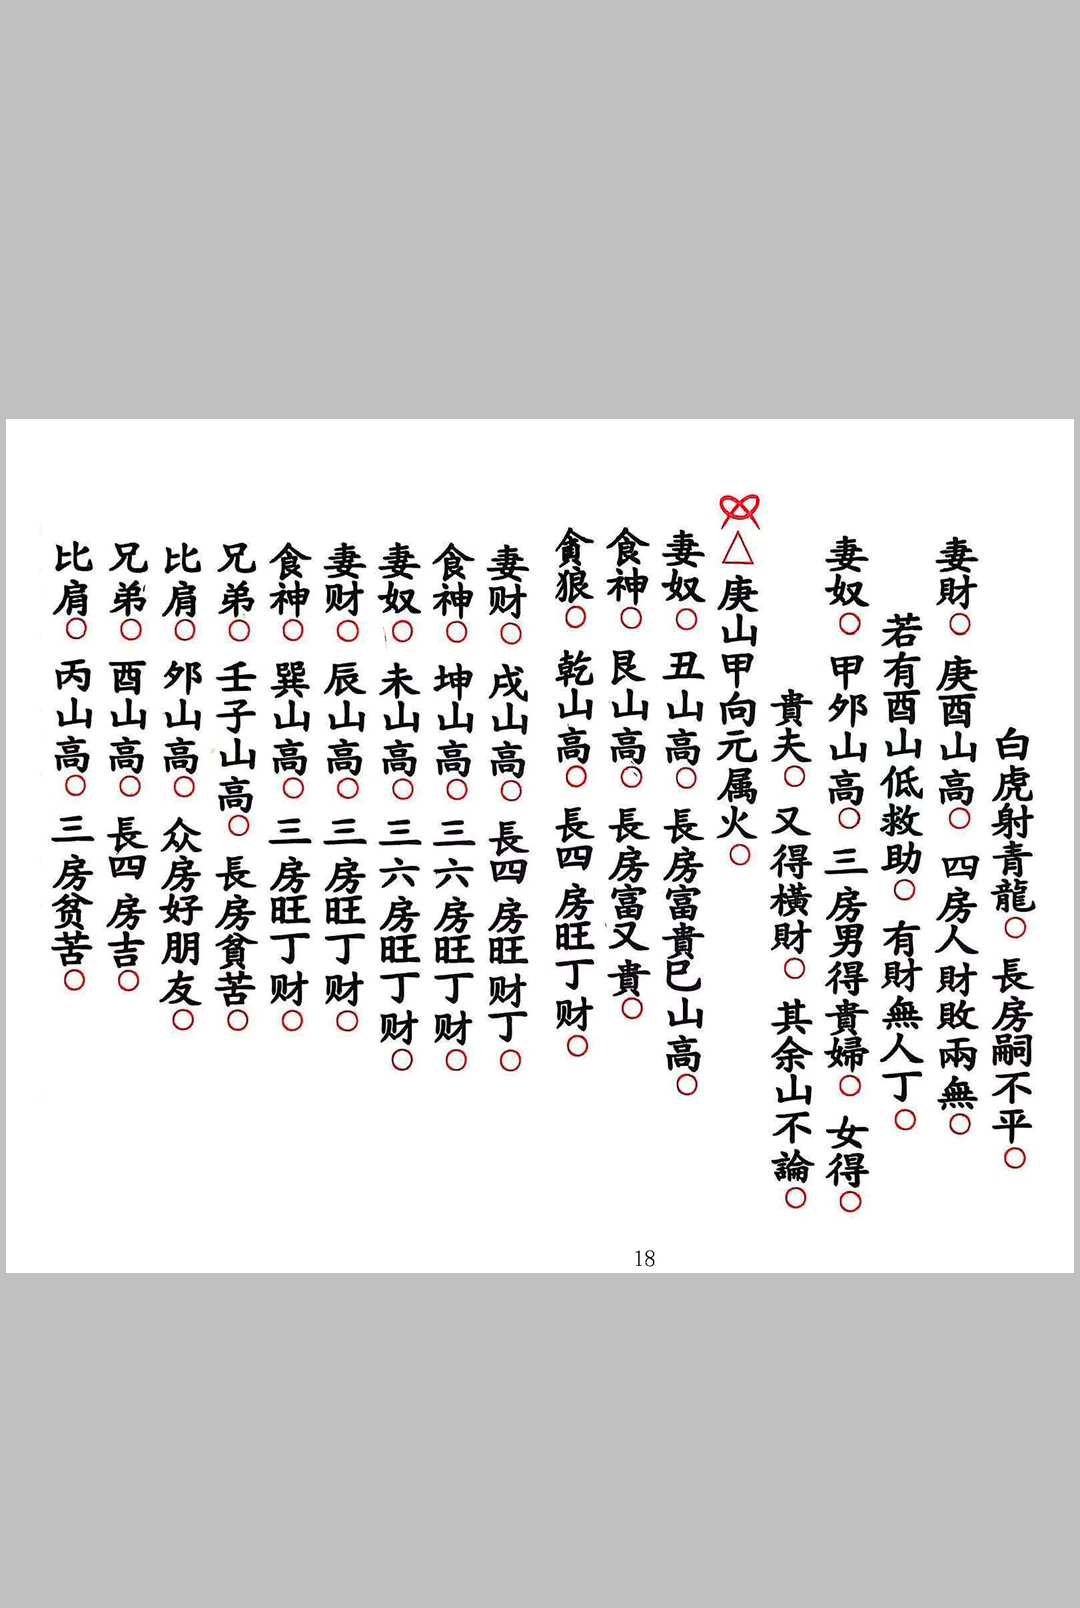 白虎射青龍○長房嗣不平○
妻財○庚酉山高○四房人財敗兩無○
若有酉山低救助○有財無人丁○
妻奴○甲夘山高○三房男得貴婦○女得○
貴夫○又得橫財○其余山不論○
△庚山甲向元属火○
妻奴○丑山高○長房富貴巳山高○
食神○艮山高○長房富又貴○
貪狼○乾山高○長四房旺丁财○
妻财○戌山高○長四房旺财丁○
食神○坤山高○三六房旺丁财○
妻奴○未山高○三六房旺丁财○
妻财○辰山高○三房旺丁财○
食神○巽山高○三房旺丁财○
兄弟○壬子山高○長房貧苦○
比肩○夘山高○众房好朋友○
兄弟○酉山高○長四房吉○
比肩○丙山高○三房贫苦○
18